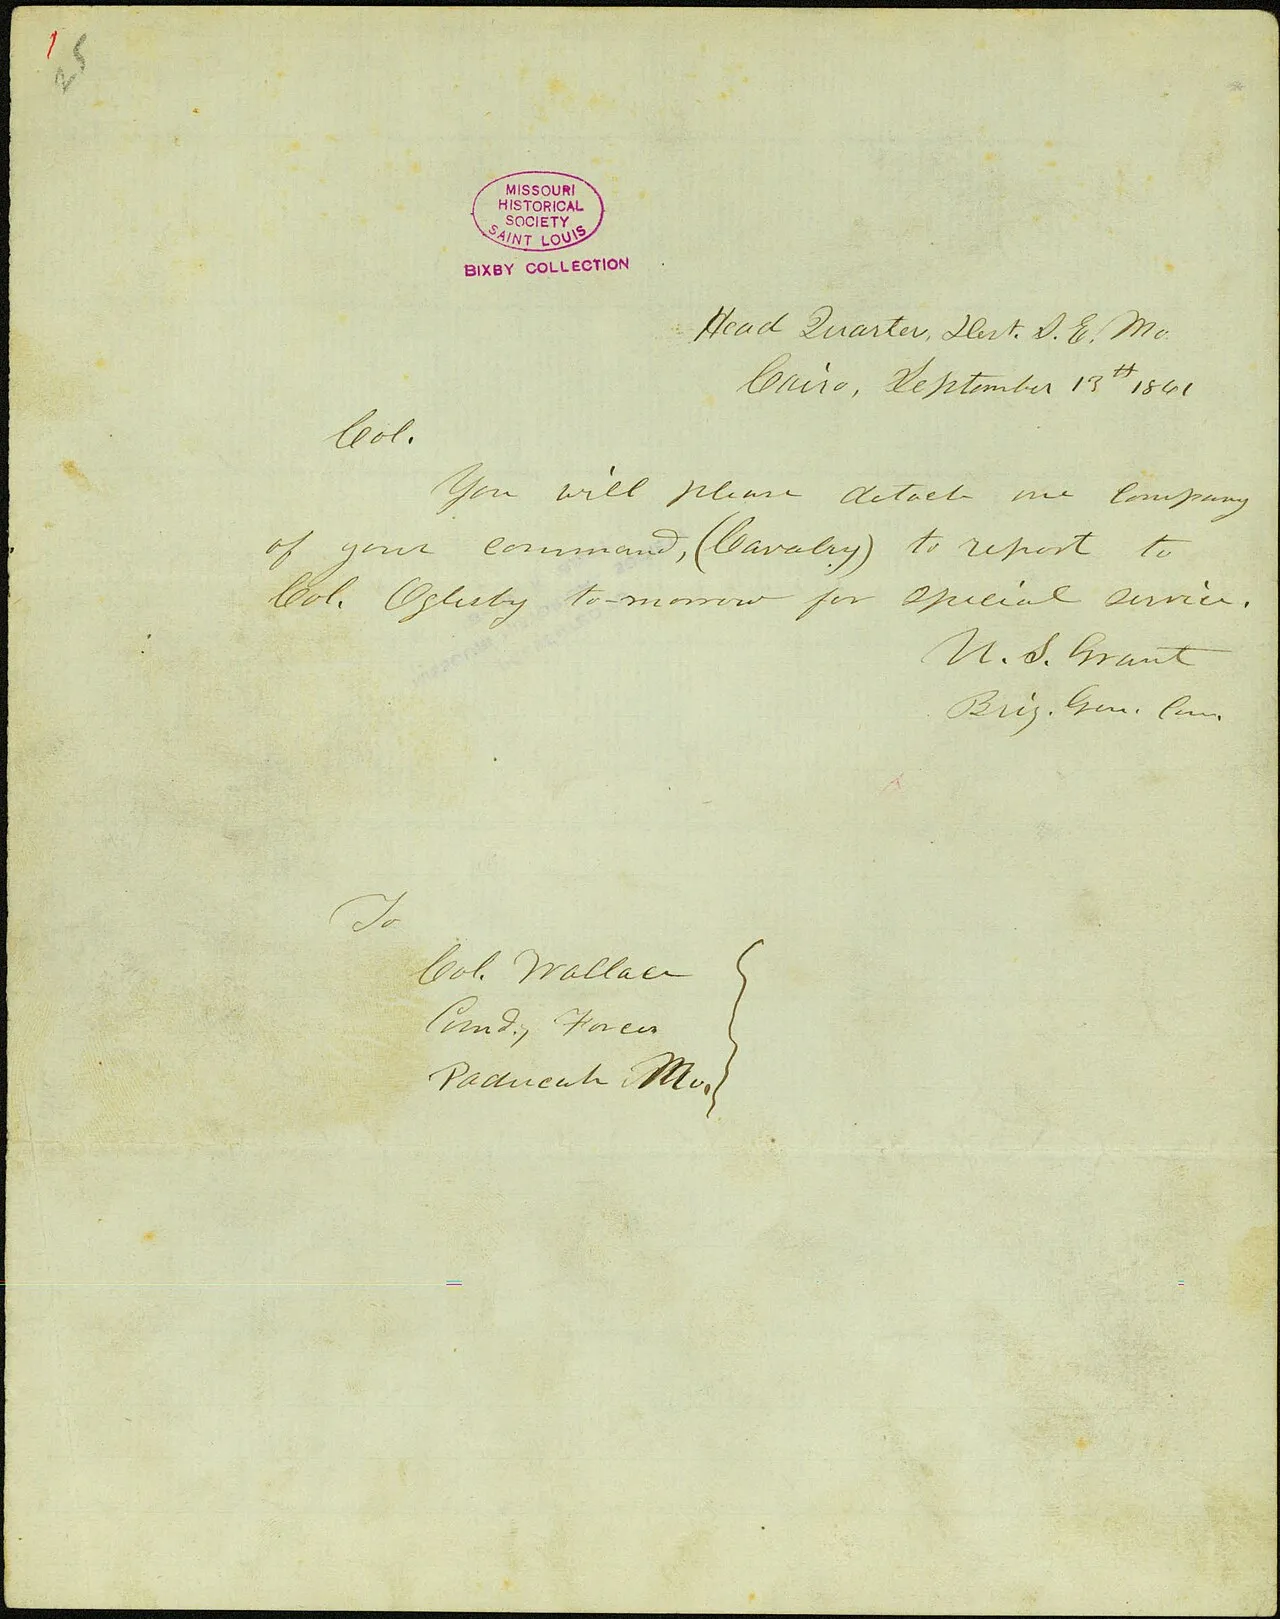 1
25
MISSOURI
HISTORICAL
SOCIETY
SAINT LOUIS
BIXBY COLLECTION
Head Quarters, Dist. S. E. Mo.
Cairo, September 13th 1861
Col.
You will please detach one company
of your command, (Cavalry) to report to
Col. Oglesby to-morrow for special service.
U. S. Grant
Brig. Gen. Com.
To
Col. Wallace
Comd.g Forces
Paducah Mo.